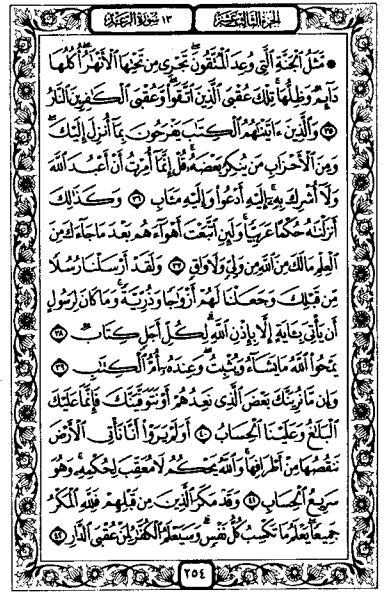 الجزء الثالث عشر ١٣ سورة الرعد
۞ مَّثَلُ ٱلْجَنَّةِ ٱلَّتِي وُعِدَ ٱلْمُتَّقُونَۖ تَجْرِي مِن تَحْتِهَا ٱلْأَنْهَٰرُۖ أُكُلُهَا
دَآئِمٌ وَظِلُّهَاۚ تِلْكَ عُقْبَى ٱلَّذِينَ ٱتَّقَوا۟ۖ وَّعُقْبَى ٱلْكَٰفِرِينَ ٱلنَّارُ
۝٣٥ وَٱلَّذِينَ ءَاتَيْنَٰهُمُ ٱلْكِتَٰبَ يَفْرَحُونَ بِمَآ أُنزِلَ إِلَيْكَۖ
وَمِنَ ٱلْأَحْزَابِ مَن يُنكِرُ بَعْضَهُۥۚ قُلْ إِنَّمَآ أُمِرْتُ أَنْ أَعْبُدَ ٱللَّهَ
وَلَآ أُشْرِكَ بِهِۦٓۚ إِلَيْهِ أَدْعُوا۟ وَإِلَيْهِ مَـَٔابِ ۝٣٦ وَكَذَٰلِكَ
أَنزَلْنَٰهُ حُكْمًا عَرَبِيًّاۚ وَلَئِنِ ٱتَّبَعْتَ أَهْوَآءَهُم بَعْدَ مَا جَآءَكَ مِنَ
ٱلْعِلْمِ مَا لَكَ مِنَ ٱللَّهِ مِن وَلِيٍّ وَلَا وَاقٍ ۝٣٧ وَلَقَدْ أَرْسَلْنَا رُسُلًا
مِّن قَبْلِكَ وَجَعَلْنَا لَهُمْ أَزْوَٰجًا وَذُرِّيَّةًۚ وَمَا كَانَ لِرَسُولٍ
أَن يَأْتِيَ بِـَٔايَةٍ إِلَّا بِإِذْنِ ٱللَّهِۗ لِكُلِّ أَجَلٍ كِتَابٌ ۝٣٨
يَمْحُوا۟ ٱللَّهُ مَا يَشَآءُ وَيُثْبِتُۖ وَعِندَهُۥٓ أُمُّ ٱلْكِتَٰبِ ۝٣٩
وَإِن مَّا نُرِيَنَّكَ بَعْضَ ٱلَّذِي نَعِدُهُمْ أَوْ نَتَوَفَّيَنَّكَ فَإِنَّمَا عَلَيْكَ
ٱلْبَلَٰغُ وَعَلَيْنَا ٱلْحِسَابُ ۝٤٠ أَوَلَمْ يَرَوْا۟ أَنَّا نَأْتِي ٱلْأَرْضَ
نَنقُصُهَا مِنْ أَطْرَافِهَاۚ وَٱللَّهُ يَحْكُمُ لَا مُعَقِّبَ لِحُكْمِهِۦۚ وَهُوَ
سَرِيعُ ٱلْحِسَابِ ۝٤١ وَقَدْ مَكَرَ ٱلَّذِينَ مِن قَبْلِهِمْ فَلِلَّهِ ٱلْمَكْرُ
جَمِيعًاۖ يَعْلَمُ مَا تَكْسِبُ كُلُّ نَفْسٍۗ وَسَيَعْلَمُ ٱلْكُفَّٰرُ لِمَنْ عُقْبَى ٱلدَّارِ ۝٤٢
٢٥٤